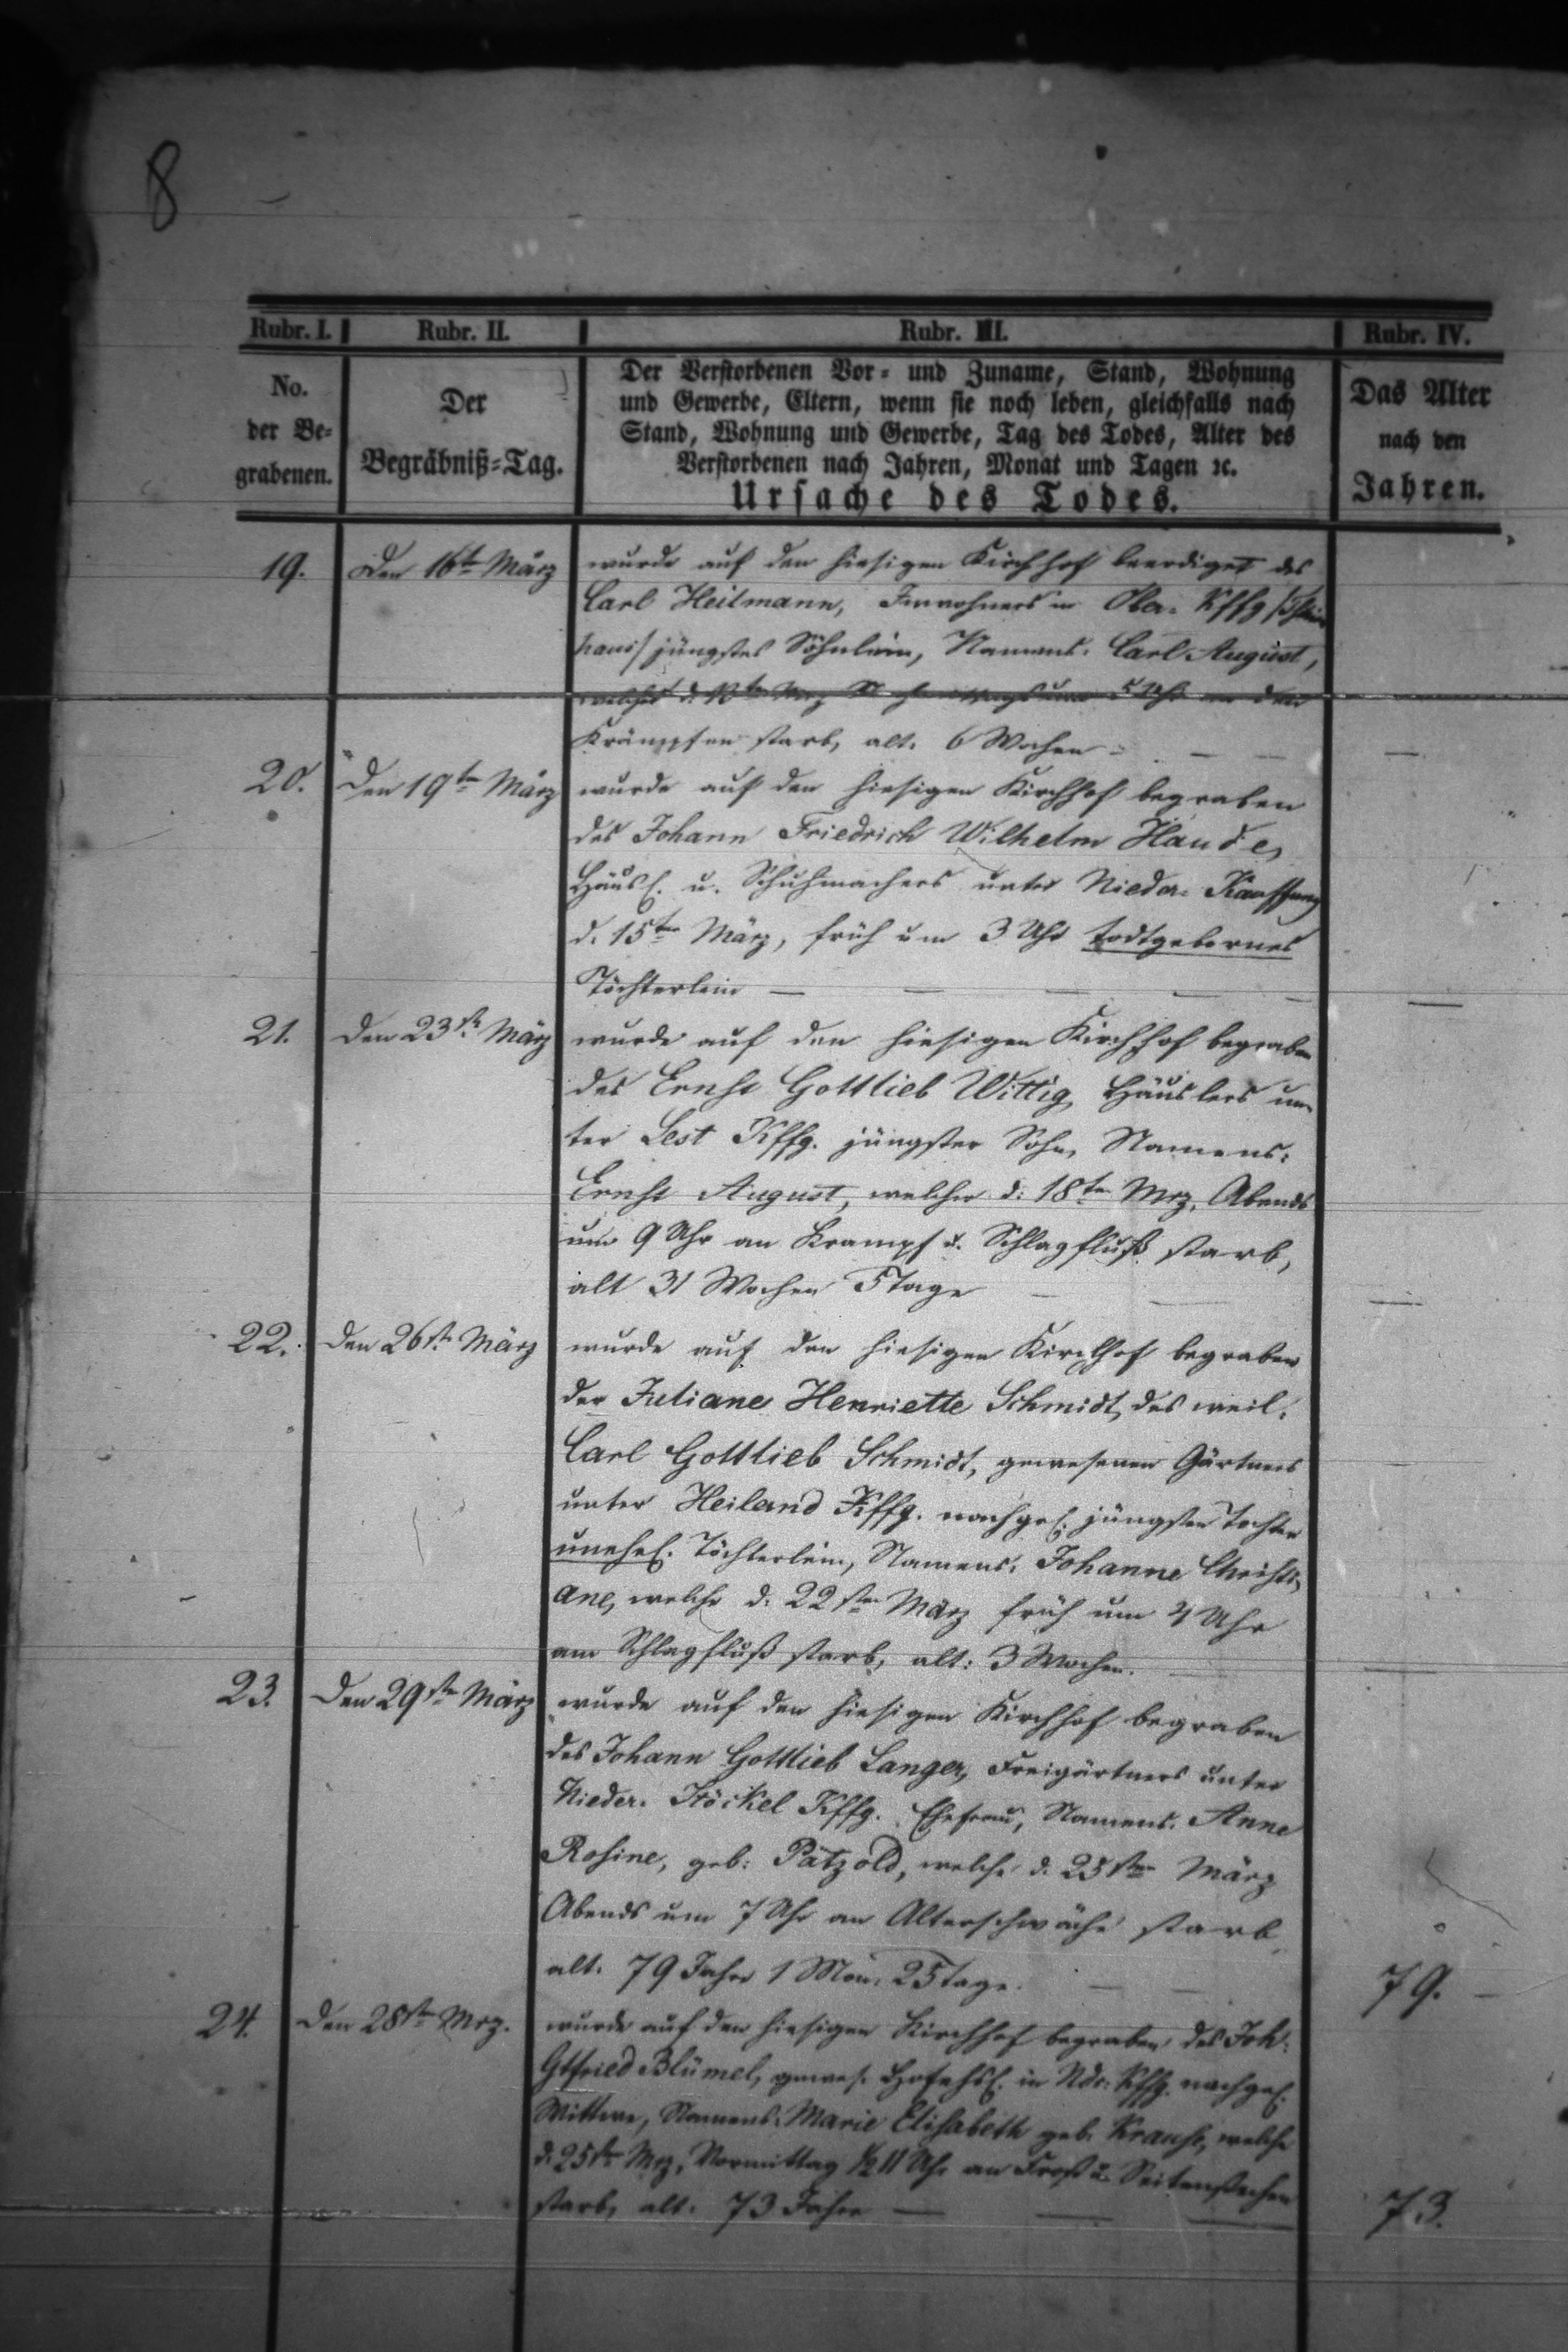 8
Rubr. I. Rubr. II. Rubr. III. Rubr. IV.
No. der Be= grabenen.
Der Begräbniß=Tag.
Der Verstorbenen Vor= und Zuname, Stand, Wohnung
und Gewerbe, Eltern, wenn sie noch leben, gleichfalls nach
Stand, Wohnung und Gewerbe, Tag des Todes, Alter des
Verstorbenen nach Jahren, Monat und Tagen ꝛc.
Ursache des Todes.
Das Alter nach den Jahren.
19. Den 16t März wurde auf den hiesigen Kirchhof beerdiget des
Carl Heilmann, Inwohners in Ober=Kffg
jüngstes Söhnlein, Namens: Carl August,
welches d. um 5 Uhr an den
Krämpfen starb, alt. 6 Wochen — —
20. Den 19ten März wurde auf den hiesigen Kirchhof begraben
des Johann Friedrich Wilhelm Haude,
Häusl. u. Schuhmachers unter Nieder=Kauffung
d. 15ten März, früh um 3 Uhr todtgebornes
Töchterlein — — — —
21. Den 23sten März wurde auf den hiesigen Kirchhof begraben
des Ernst Gottlieb Wittig, Häuslers un=
ter Lest Kffg. jüngster Sohn, Namens:
Ernst August, welcher d: 18ten Mrz, Abends
um 9 Uhr an Krampf u. Schlagfluß starb,
alt 31 Wochen 5 Tage — —
22. Den 26sten März wurde auf den hiesigen Kirchhof begraben
der Juliane Henriette Schmidt, des weil.
Carl Gottlieb Schmidt, gewesenen Gärtners
unter Heiland Kffg. nachgel. jüngsten Tochter
unehel. Töchterlein, Namens: Johanne Christi=
ane, welche d: 22sten März früh um 4 Uhr
am Schlagfluß starb, alt: 3 Wochen. —
23. Den 29sten März wurde auf den hiesigen Kirchhof begraben
des Johann Gottlieb Langer, Freigärtners unter
Nieder=Stöckel Kffg. Ehefrau, Namens: Anne
Rosine, geb: Pätzold, welche d. 25sten März
Abends um 7 Uhr an Alterschwäche starb,
alt. 79 Jahre 1 Mon. 25 Tage. — — 79. —
24. Den 28sten Mrz. wurde auf den hiesigen Kirchhof begraben des Joh:
Gtfried Blümel, gewes. in Ndr: Kffg. nachgel.
Wittwe, Namens: Marie Elisabeth geb. Krause, welche
d. 25sten Mrz, Vormittag ½ 11 Uhr an Frost u. Seitenstechen
starb, alt. 73 Jahre — — — 73.